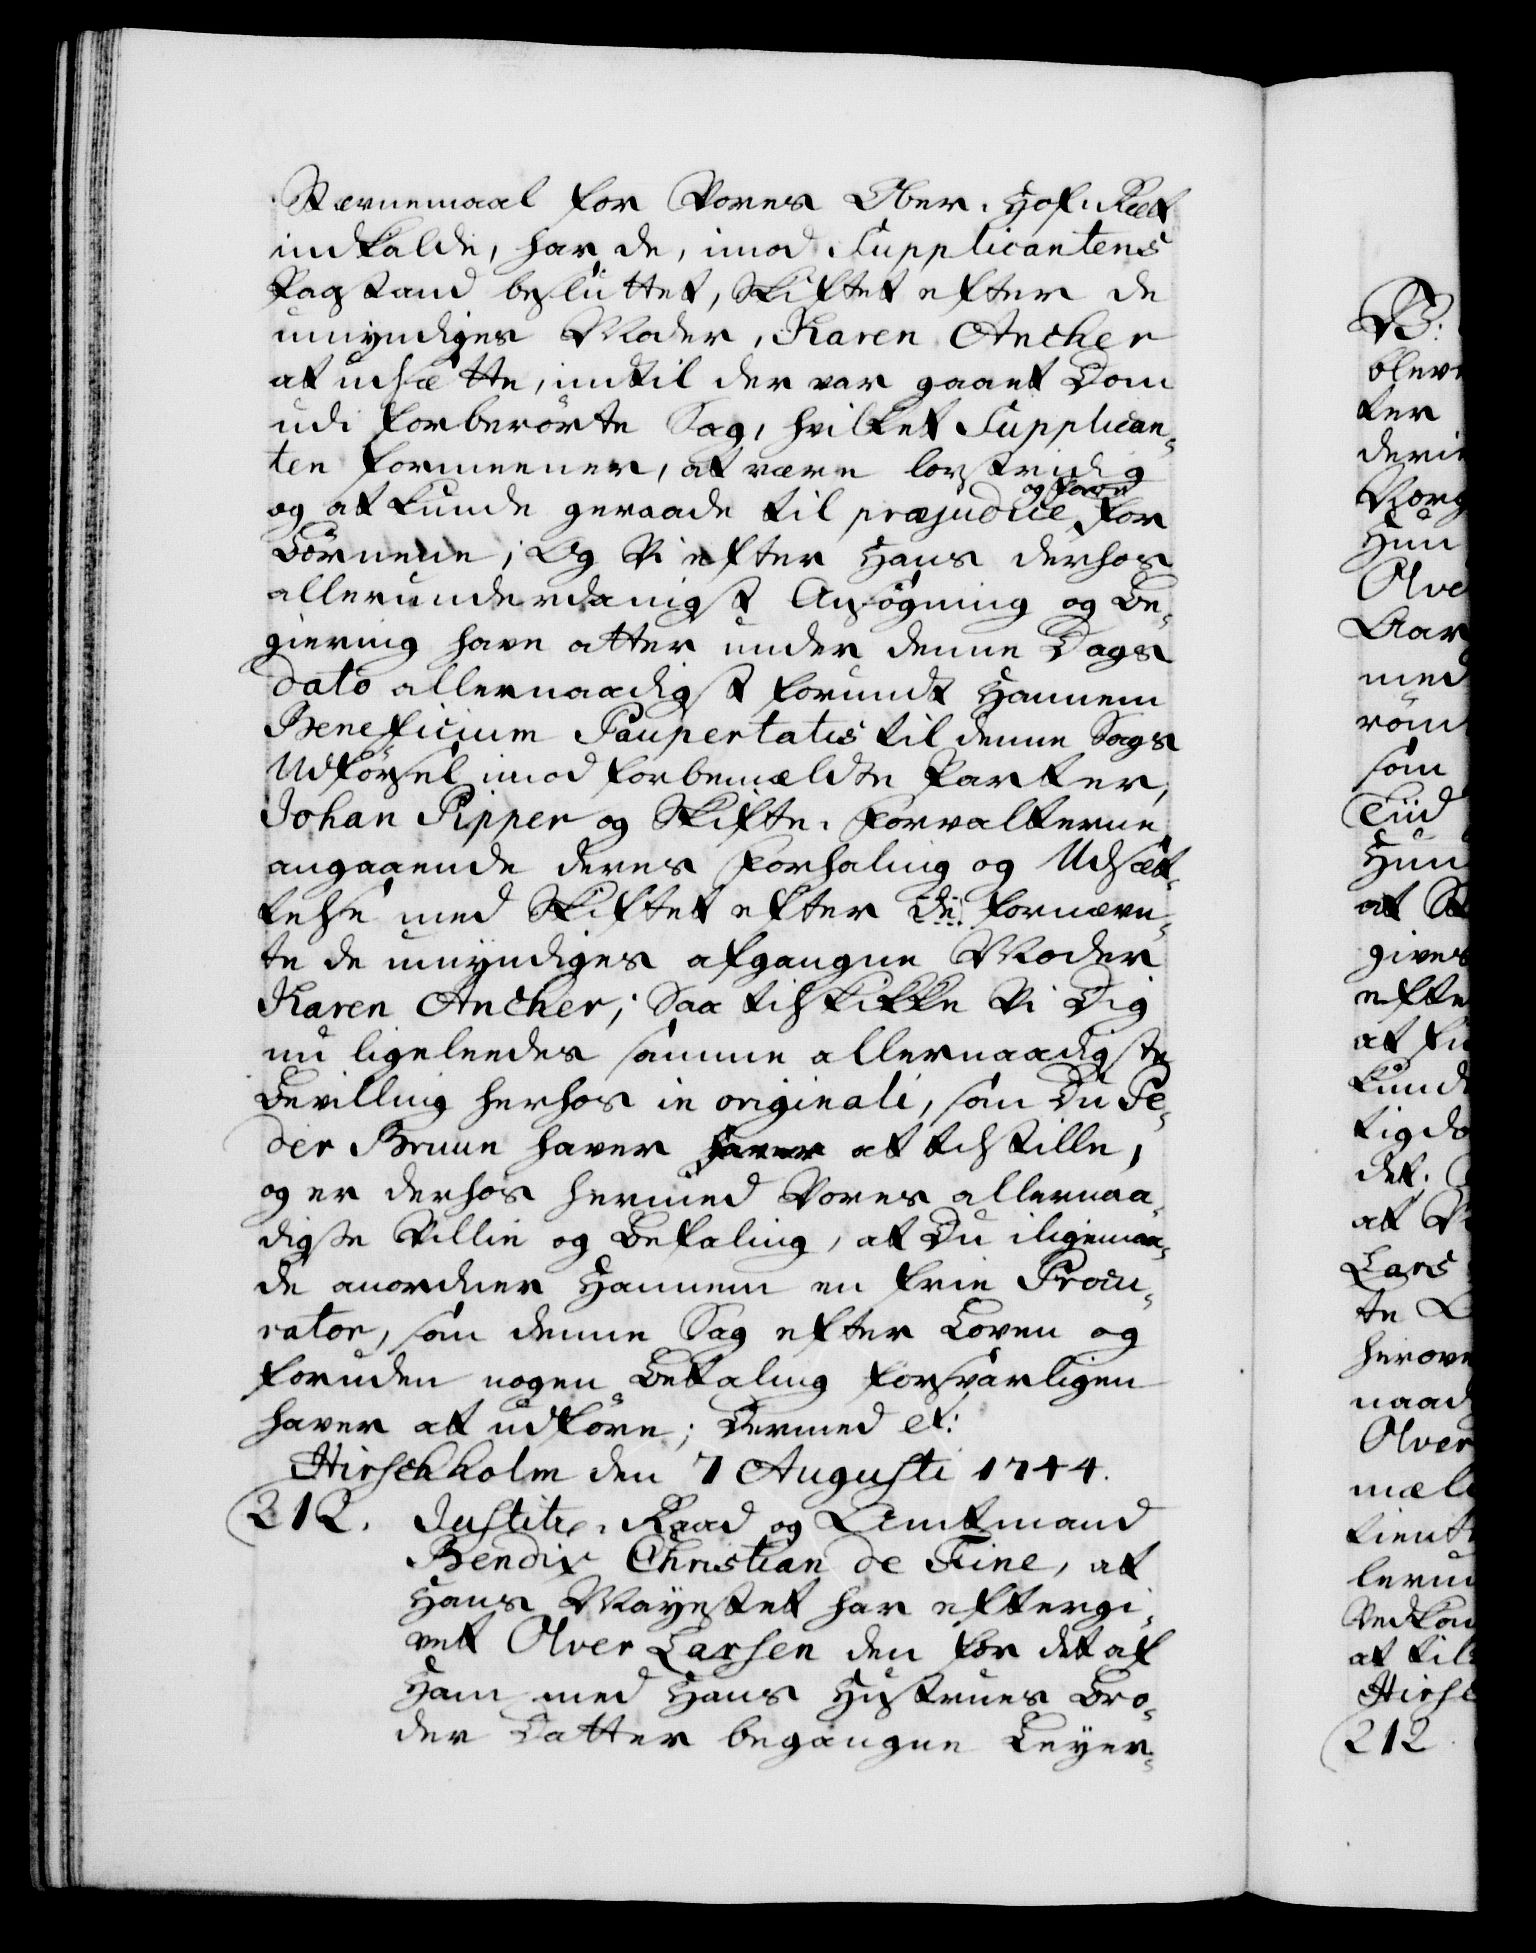 Stævnemaal for Vores Ober-Hof-Ræt
indkalde, har de, imod Supplicantens
Paastand besluttet, Skiftet efter de
umyndiges Moder, Karen Ancher
at udsætte, indtil der var gaaet Dom
udi forberørte Sag, hvilket Supplican-
ten formeener, at være lovstridig
og at kunde geraade til præjudice og fare for
Børnene; Og Vi efter Hans derhos
allerunderdanigst Ansøgning og Be-
giering have atter under denne Dags
dato allernaadigst forundt Hannem
Beneficium Paupertatis til denne Sags
Udførsel imod forbemældte Parter,
Johan Pipper og Skifte-Forvalterne
angaaende deres Forhaling og Udsæt-
telse med Skiftet efter de fornævn-
te de umyndiges afgangne Moder
Karen Ancher; Saa tilskikke Vi Dig
nu ligeleedes samme allernaadigste
Bevilling herhos in originali, som Du Pe-
der Bruun haver at tilstille,
og er derhos hermed Vores allernaa-
digste Villie og Befaling, at Du iligemaa-
de anordner Hannem en frie Procu-
rator, som denne Sag efter Loven og
foruden nogen Betaling forsvarligen
haver at udføre; Dermed et:
Hirschholm den 7 Augusti 1744.
212. Justitz-Raad og Amtmand
Bendix Christian de Fine, at
Hans Mayestet har eftergi-
vet Olver Larsen den for det af
Ham med Hans Hustrues Bro-
der Datter begangne Leyer-
V.
blev
ter
derie
Norg
Hun
Olve
Aar
med
røm
som
Tiid
Hun
at S
gives
efte
at
kund
tigdo
det.
at V
Lars
te L
herove
naad
Olver
mæl
tient
lerun
Vedko
at til
Hirsc
212